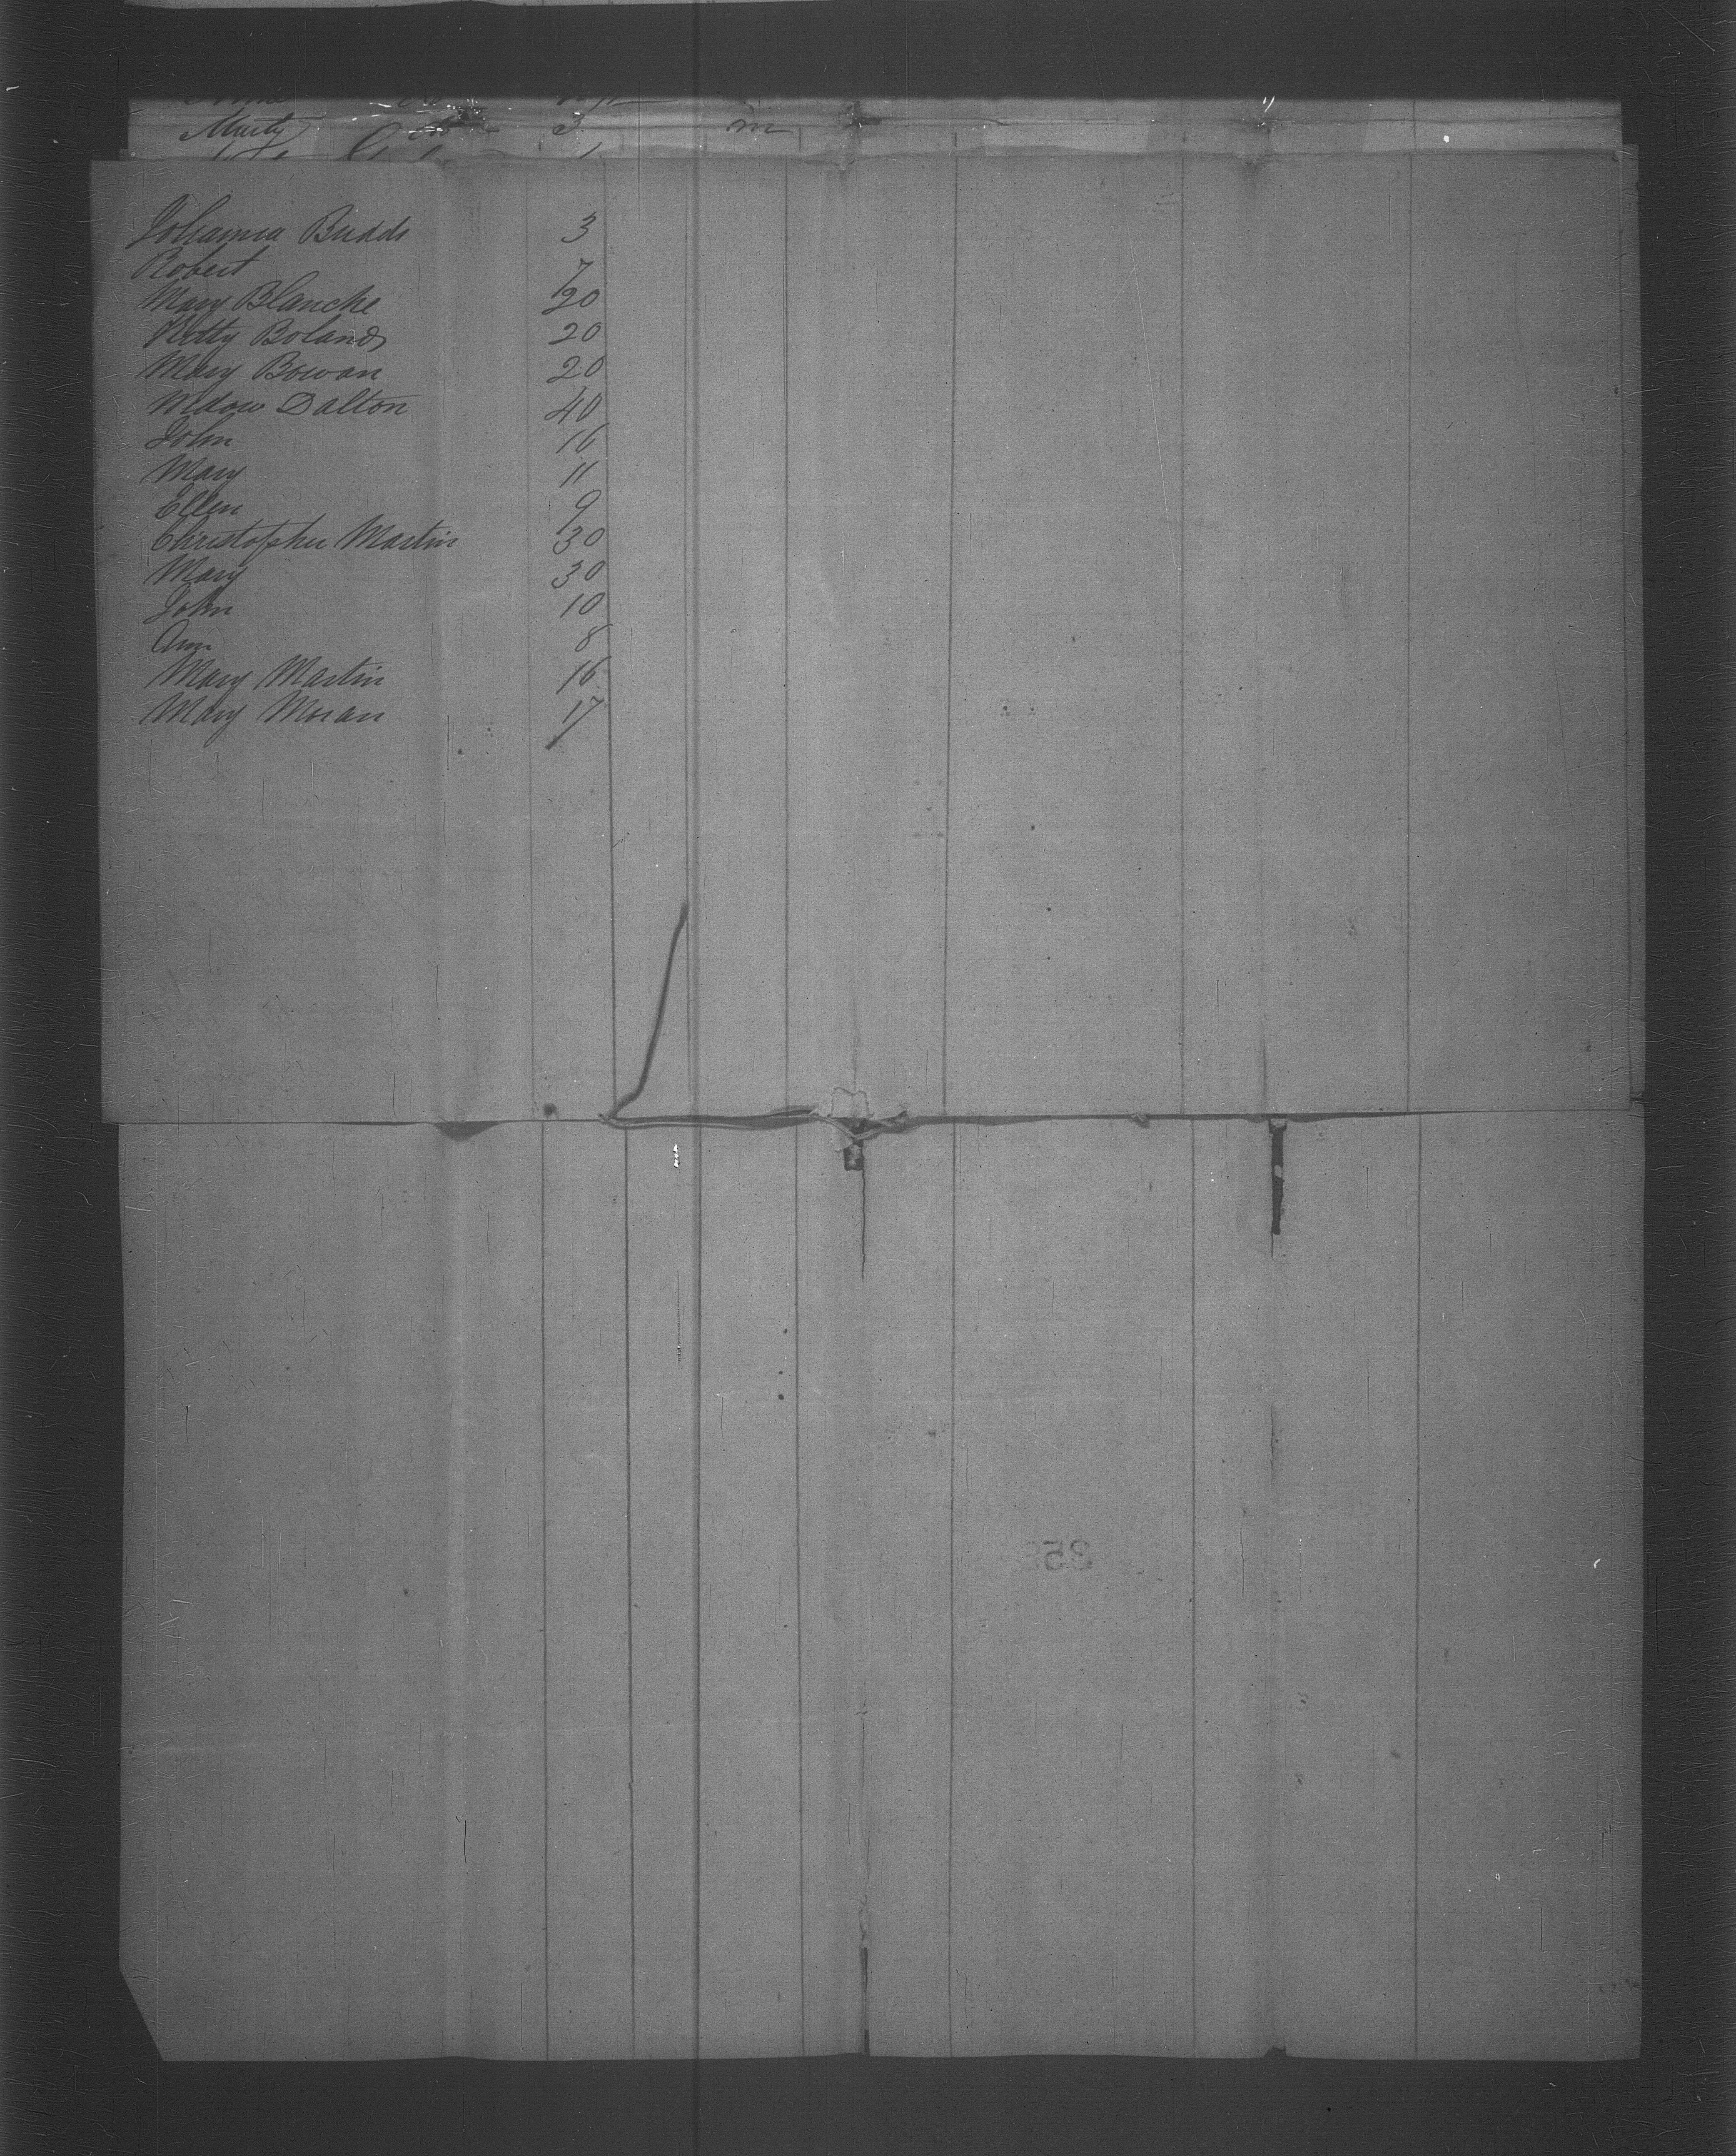 Marty do 3 m
Johanna Budds 3
Robert 7
Mary Blanche 20
Kitty Boland 20
Mary Bowan 20
Widow Dalton 40
John 16
Mary 11
Ellen 9
Christopher Martin 30
Mary 30
John 10
Ann 8
Mary Martin 16
Mary Moran 17